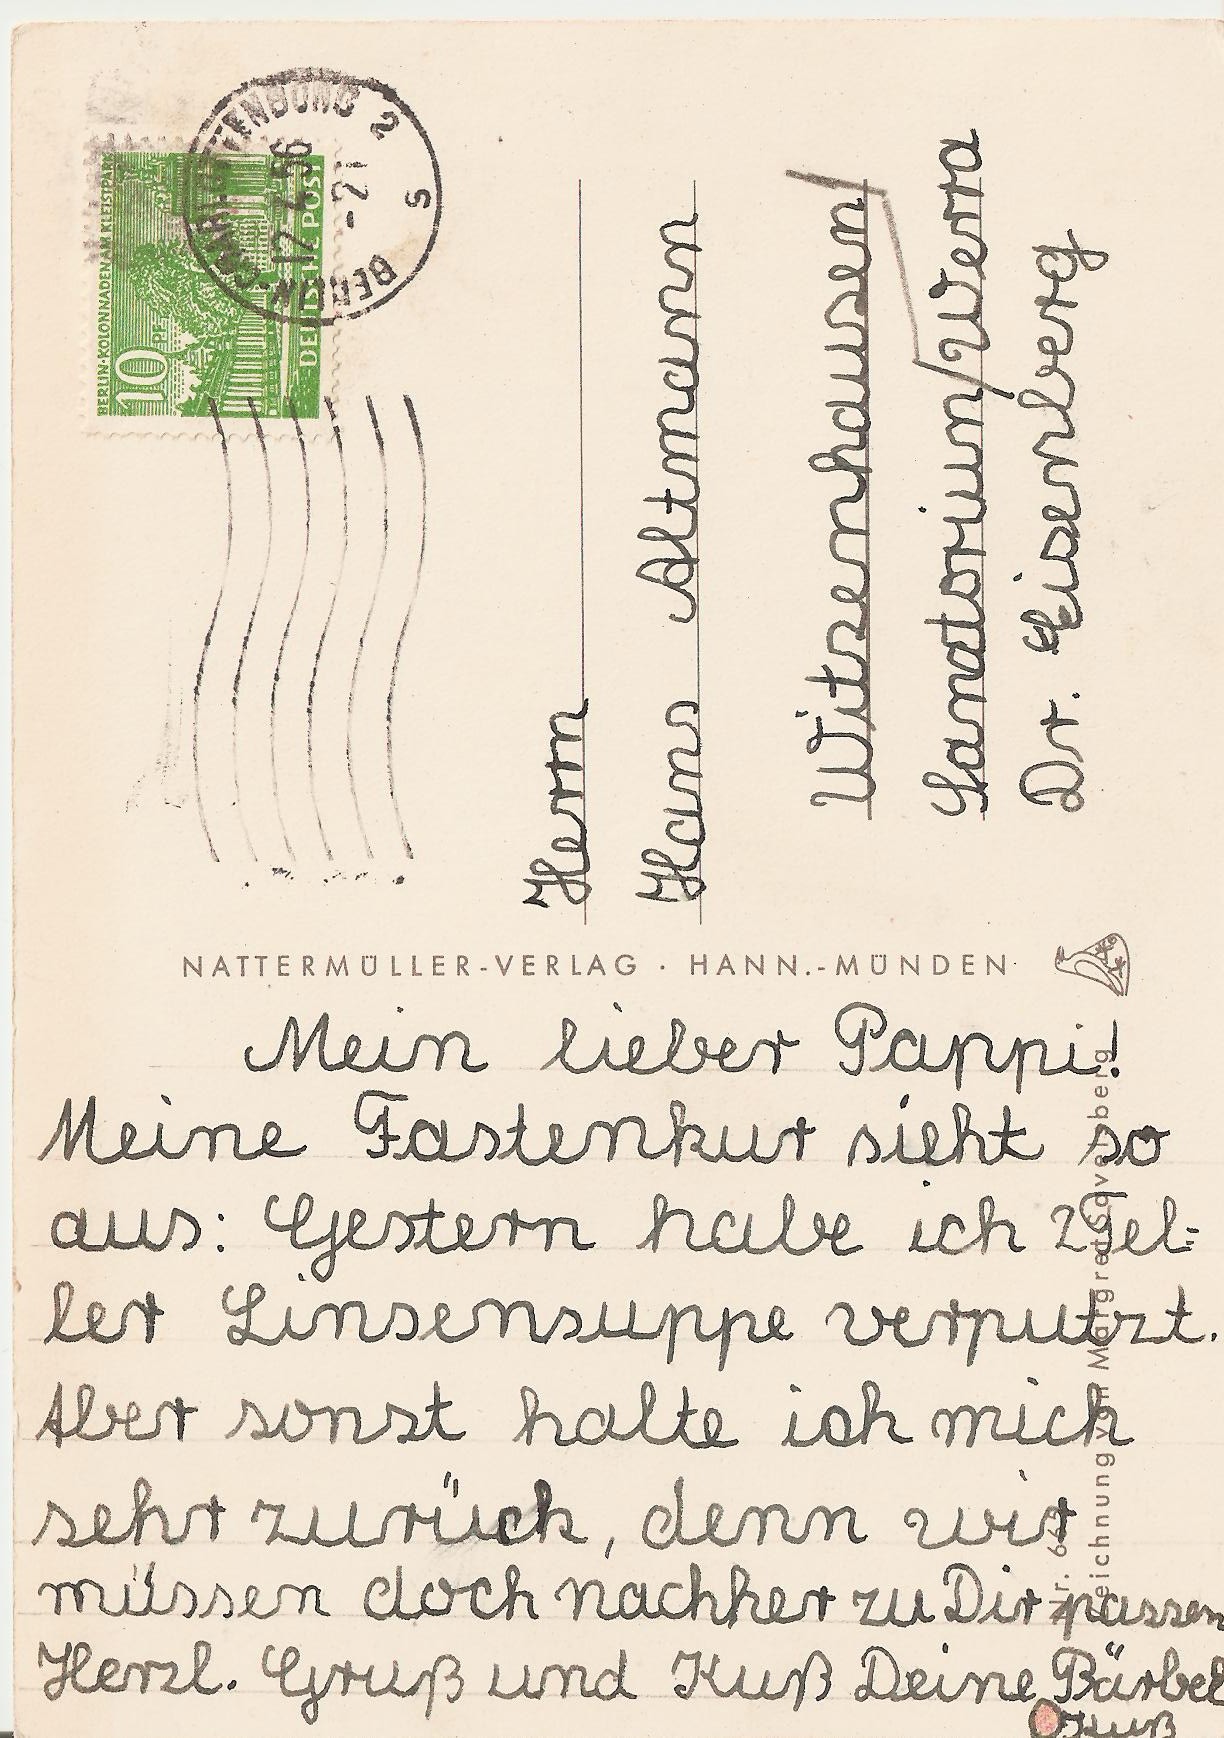 BERLIN·KOLONNADEN AM KLEISTPARK
10 PF
DEUTSCHE POST
BERLIN-CHARLOTTENBURG 2
17.4.56
-21
s
Herrn
Hans Altmann
Witzenhausen
Sanatorium/Werra
Dr. Eisenberg
NATTERMÜLLER-VERLAG · HANN.-MÜNDEN
Mein lieber Pappi!
Meine Fastenkur sieht so
aus: Gestern habe ich 2 Tel-
ler Linsensuppe verputzt.
Aber sonst halte ich mich
sehr zurück, denn wir
müssen doch nachher zu Dir passen
Herzl. Gruß und Kuß Deine Bärbel
Kuß
Zeichnung von Margret